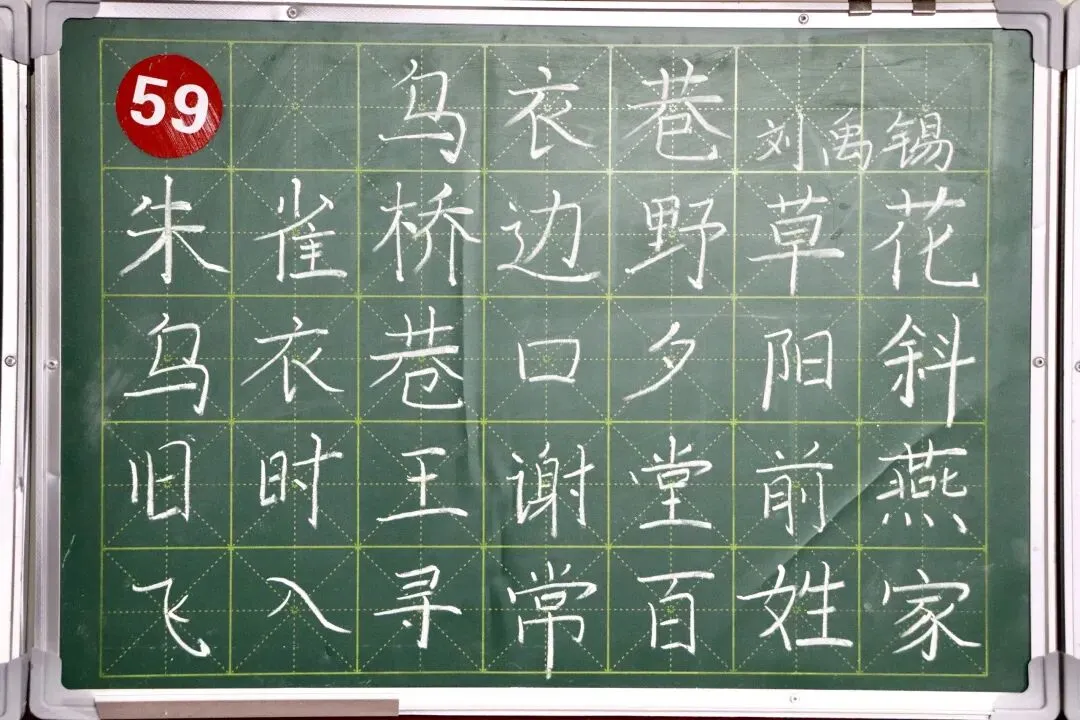 59
乌衣巷 刘禹锡
朱雀桥边野草花
乌衣巷口夕阳斜
旧时王谢堂前燕
飞入寻常百姓家